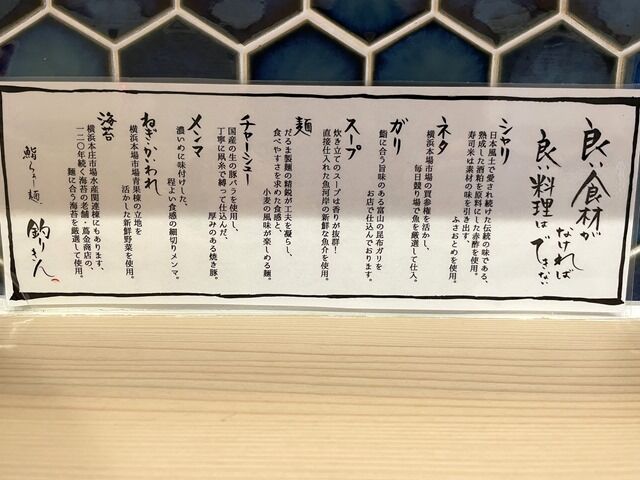 良い食材が
なければ
良い料理は
できない
シャリ
日本風土で愛され続けた伝統の味である、
熟成した酒粕を原料にした赤酢を使用。
寿司米は素材の味を引き出す、
ふさおとめを使用。
ネタ
横浜本場市場の買参権を活かし、
毎日競り場で魚を厳選して仕入。
ガリ
鮨に合う旨味のある富山の昆布ガリを
お店で仕込んでおります。
スープ
炊き立てのスープは香りが抜群!
直接仕入れた魚河岸の新鮮な魚介を使用。
麺
だるま製麺の精鋭が工夫を凝らし、
食べやすさを求めた食感と、
小麦の風味が楽しめる麺。
チャーシュー
国産の生の豚バラを使用し、
丁寧に凧糸で縛って仕込んだ、
厚みのある焼き豚。
メンマ
濃いめに味付けした、
程よい食感の細切りメンマ。
ねぎ・かいわれ
横浜本場市場青果棟の立地を
活かした新鮮野菜を使用。
海苔
横浜本庄市場水産関連棟にもあります、
一二〇年続く海苔の老舗・蔦金商店の、
麺に合う海苔を厳選して使用。
鮨らぁー麺
釣りきん